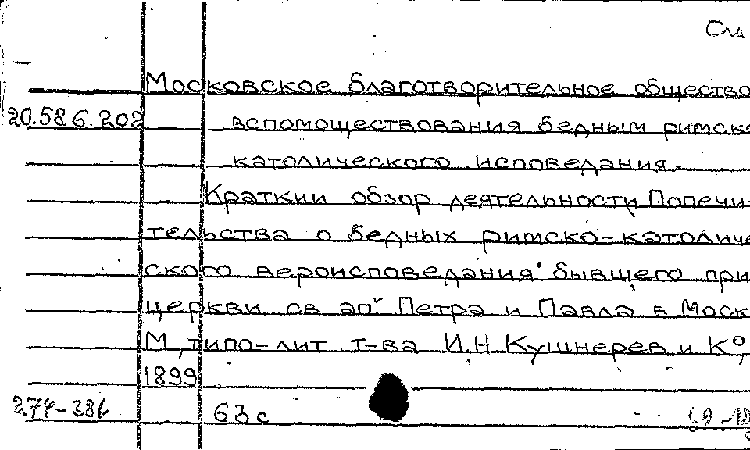 См
Московское благотворительное общество
20.586.202 вспомоществования бедным римско
католического исповедания.
Краткий обзор деятельности Попечи-
тельства о бедных римско-католиче
ского вероисповедания бывшего при
церкви св ап Петра и Павла в Моск
М, типо-лит т-ва И.Н Кушнерев и К°,
1899
63 с